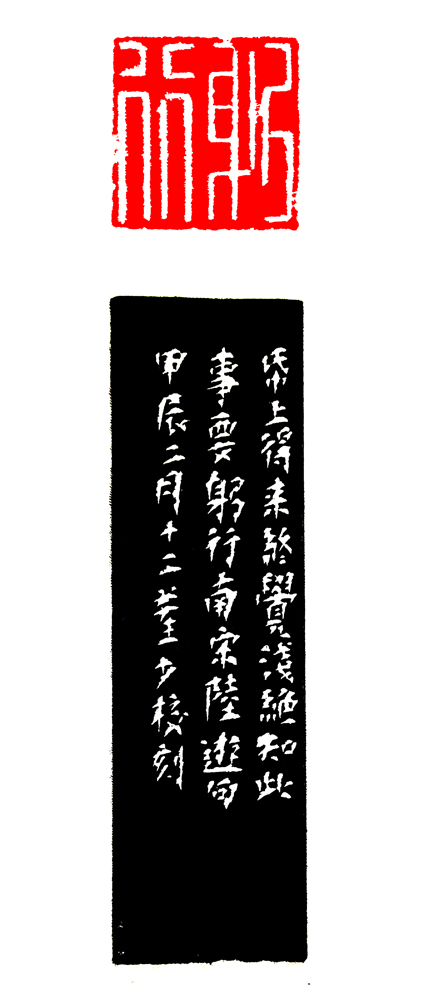 躬行
帋上得来終覺淺絕知此
事要躬行南宋陸遊句
甲辰二月十二董少校刻